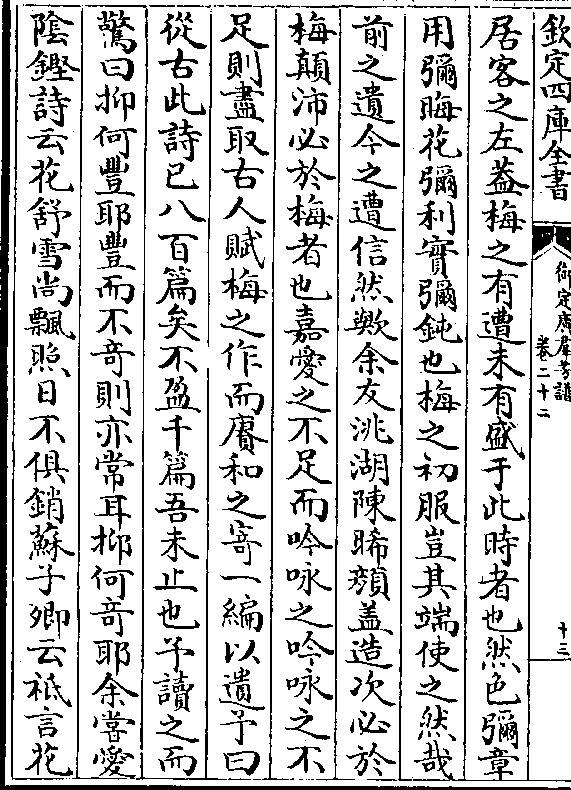 欽定四庫全書
御定廣羣芳譜
卷二十二
十三
居客之左葢梅之有遭未有盛于此時者也然色彌章
用彌晦花彌利實彌鈍也梅之初服豈其端使之然哉
前之遺今之遭信然歟余友洮湖陳晞顔盖造次必於
梅顛沛必於梅者也嘉愛之不足而吟咏之吟咏之不
足則盡取古人賦梅之作而賡和之寄一編以遺予曰
從古此詩已八百篇矣不盈千篇吾未止也予讀之而
驚曰抑何豐耶豐而不竒則亦常耳抑何竒耶余嘗愛
陰鏗詩云花舒雪尚飄照日不俱銷蘇子卿云祗言花